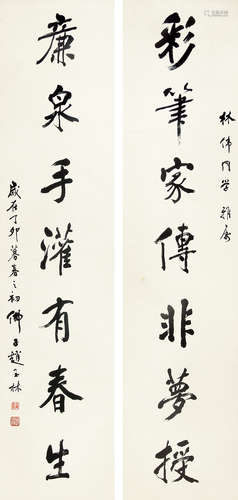 林伟同学雅属
彩筆家傳非夢授
廉泉手灌有春生
歲在丁卯暮春之初佛子趙玉林